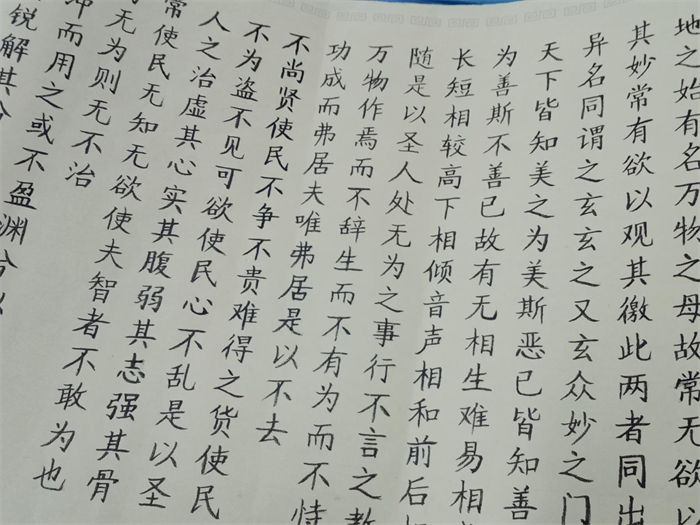 地之始有名万物之母故常无欲以
其妙常有欲以观其徼此两者同出
异名同谓之玄玄之又玄众妙之门
天下皆知美之为美斯恶已皆知善
为善斯不善已故有无相生难易相
长短相较高下相倾音声相和前后
随是以圣人处无为之事行不言之教
万物作焉而不辞生而不有为而不恃
功成而弗居夫唯弗居是以不去
不尚贤使民不争不贵难得之货使民
不为盗不见可欲使民心不乱是以圣
人之治虚其心实其腹弱其志强其骨
常使民无知无欲使夫智者不敢为也
为无为则无不治
冲而用之或不盈渊兮以
锐解其